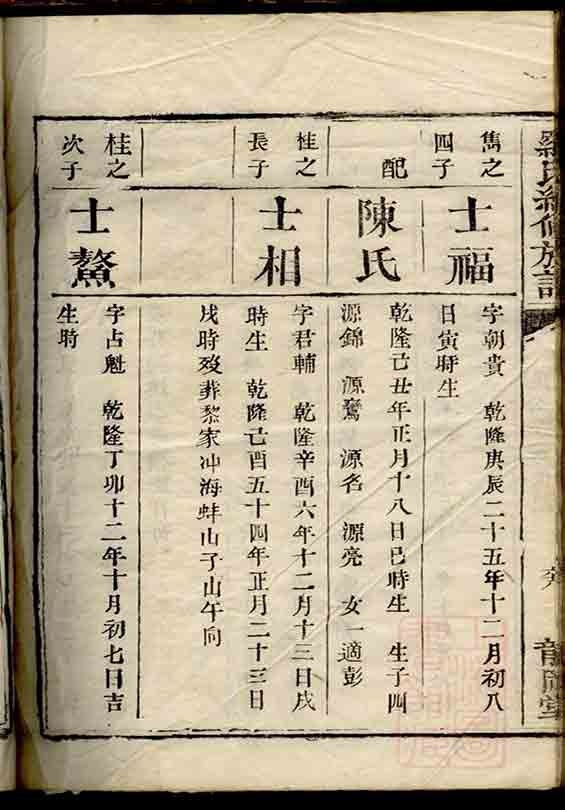 羅氏續修族譜
雋之
四子
士福
字朝貴 乾隆庚辰二十五年十二月初八
日寅時生
配
陳氏
乾隆己丑年正月十八日巳時生 生子四
源錦 源鶩 源名 源亮 女一適彭
桂之
長子
士相
字君輔 乾隆辛酉六年十二月十三日戌
時生 乾隆己酉五十四年正月二十三日
戌時歿葬黎家冲海蚌山子山午向
桂之
次子
士鰲
字占魁 乾隆丁卯十二年十月初七日吉
生時